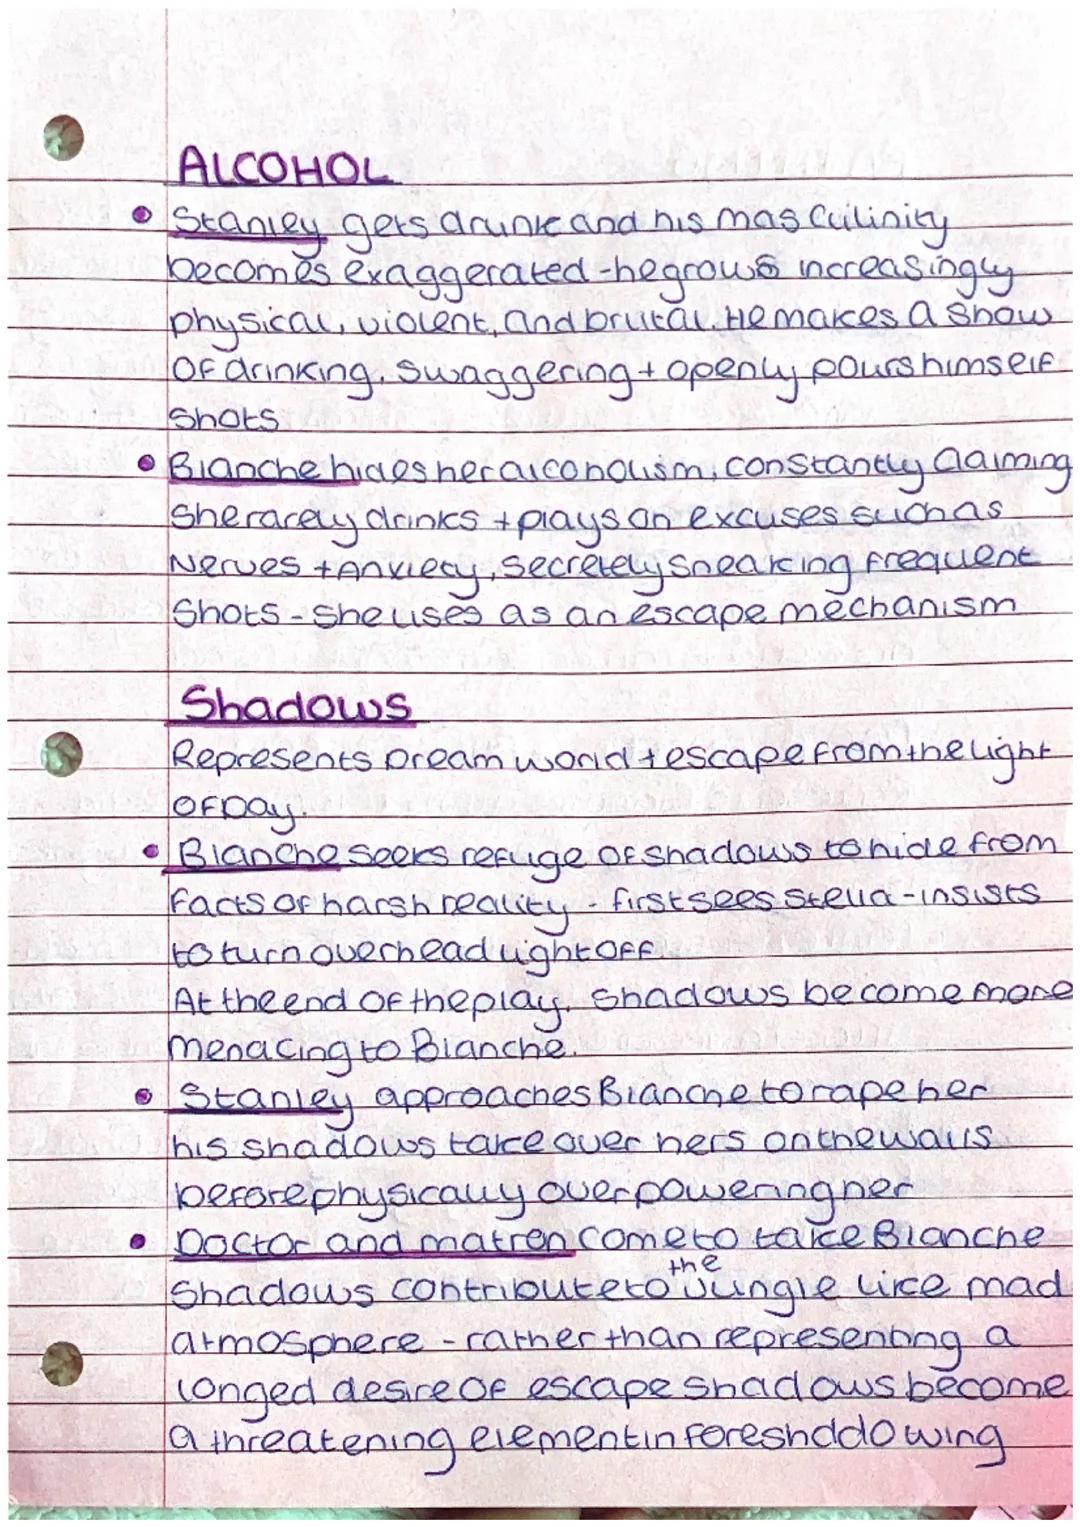 ALCOHOL
Stanley gets drunk and his masculinity
becomes exaggerated - he grows increasingly
physical, violent, and brutal. He makes a show
of drinking, swaggering + openly pours himself
shots
Blanche hides her alcoholism, constantly claiming
she rarely drinks + plays on excuses such as
Nerves + Anxiety, secretely sneaking frequent
shots - she uses as an escape mechanism
Shadows
Represents Dream world + escape from the light
of Day.
Blanche seeks refuge of shadows to hide from
facts of harsh reality - first sees Stella - insists
to turn overhead light off.
At the end of the play, shadows become more
menacing to Blanche.
Stanley approaches Blanche to rape her
his shadows take over hers on the walls
before physically overpowering her
Doctor and matron come to take Blanche
Shadows contribute to the Jungle like mad
atmosphere - rather than representing a
longed desire of escape shadows become
a threatening element in foreshddowing